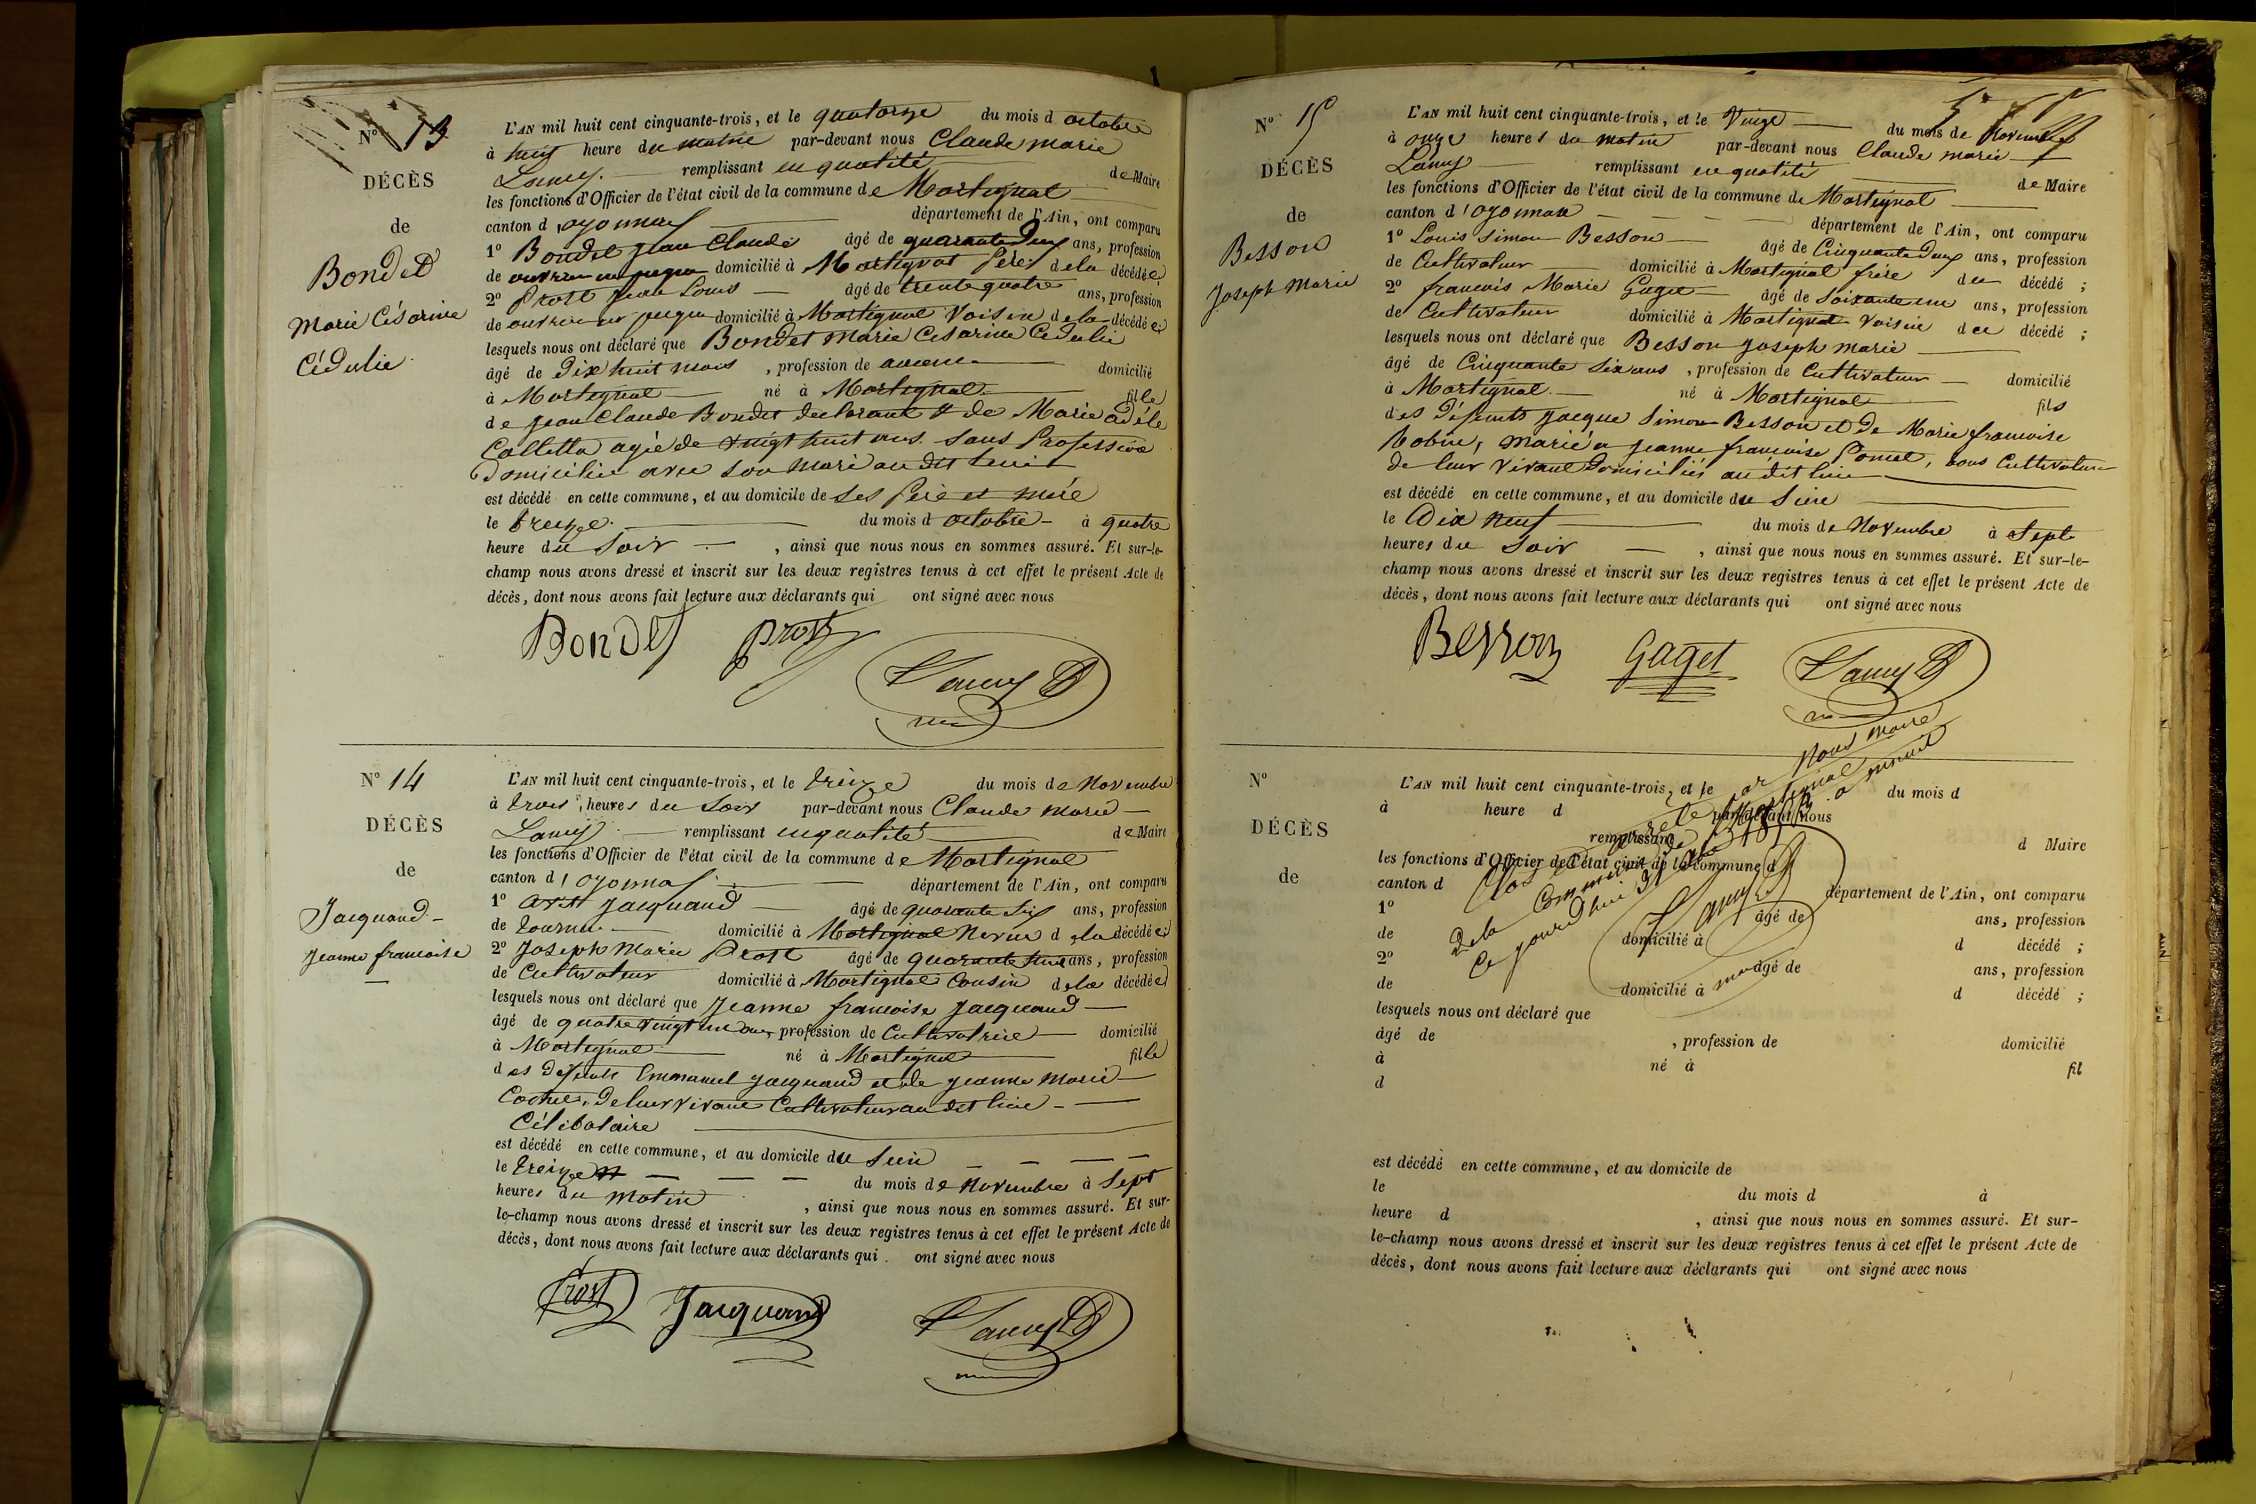 N° 13
DÉCÈS
de
Bondet
Marie Césarine
Cédulie
L'AN mil huit cent cinquante-trois, et le quatorze du mois d octobre
à huit heure du matin par-devant nous Claude marie
Lamy remplissant en qualité de Maire
les fonctions d'Officier de l'état civil de la commune de Martignat
canton d'oyonnax département de l'Ain, ont comparu
1° Bondet jean Claude âgé de quarante deux ans, profession
de ouvrier en peigne domicilié à Martignat Père dela décédée;
2° Prost jean Louis âgé de trente quatre ans, profession
de ouvrier en peigne domicilié à Martignat Voisin dela décédée;
lesquels nous ont déclaré que Bondet Marie Césarine Cédulie
âgé de Dix huit mois, profession de aucune domicilié
à Martignat né à Martignat fille
de jean Claude Bondet declarant & de Marie adèle
Colletta agée de vingt huit ans. Sans Profession
Domicilié avec son mari au dit lieu
est décédé en cette commune, et au domicile de Ses Père et mère
le treize du mois d octobre à quatre
heure du Soir, ainsi que nous nous en sommes assuré. Et sur-le-
champ nous avons dressé et inscrit sur les deux registres tenus à cet effet le présent Acte de
décès, dont nous avons fait lecture aux déclarants qui ont signé avec nous
Bondet Prost Lamy
N° 14
DÉCÈS
de
Jacquand
jeanne francoise
L'AN mil huit cent cinquante-trois, et le treize du mois de Novembre
à trois heures du Soir par-devant nous Claude marie
Lamy remplissant en qualité de Maire
les fonctions d'Officier de l'état civil de la commune de Martignat
canton d'oyonnax département de l'Ain, ont comparu
1° jacquand âgé de quarante Six ans, profession
de tourneur domicilié à Martignat Neveu d ela décédée;
2° Joseph Marie Prost âgé de quarante ans, profession
de Cultivateur domicilié à Martignat Cousin dela décédée;
lesquels nous ont déclaré que jeanne francoise jacquand
âgé de quatre vingt un ans, profession de Cultivatrice domicilié
à Martignat né à Martignat fille
des défunts Emmanuel jacquand et de jeanne Marie
de leur vivant Cultivateur au dit lieu
Célibataire
est décédé en cette commune, et au domicile du Sien
le treize du mois de Novembre à Sept
heures du matin, ainsi que nous nous en sommes assuré. Et sur-
le-champ nous avons dressé et inscrit sur les deux registres tenus à cet effet le présent Acte de
décès, dont nous avons fait lecture aux déclarants qui ont signé avec nous
Prost Jacquand Lamy
N° 15
DÉCÈS
de
Besson
Joseph Marie
L'AN mil huit cent cinquante-trois, et le Vingt du mois de Novembre
à onze heures du matin par-devant nous Claude marie
Lamy remplissant en qualité de Maire
les fonctions d'Officier de l'état civil de la commune de Martignat
canton d'oyonnax département de l'Ain, ont comparu
1° Louis Simon Besson âgé de Cinquante deux ans, profession
de Cultivateur domicilié à Martignat frère du décédé;
2° francois Marie Gaget âgé de Soixante un ans, profession
de Cultivateur domicilié à Martignat Voisin du décédé;
lesquels nous ont déclaré que Besson joseph marie
âgé de Cinquante Six ans, profession de Cultivateur domicilié
à Martignat né à Martignat fils
des défunts jacque Simon Besson et de Marie francoise
marié a jeanne francoise Poncet, tous Cultivateur
de leur vivant Domiciliés au dit lieu
est décédé en cette commune, et au domicile du Sien
le Dix neuf du mois de Novembre à Sept
heures du Soir, ainsi que nous nous en sommes assuré. Et sur-le-
champ nous avons dressé et inscrit sur les deux registres tenus à cet effet le présent Acte de
décès, dont nous avons fait lecture aux déclarants qui ont signé avec nous
Besson Gaget Lamy
N°
DÉCÈS
de
L'AN mil huit cent cinquante-trois, et le du mois d
à heure d par-devant nous
remplissant d Maire
les fonctions d'Officier de l'état civil de la commune d
canton d département de l'Ain, ont comparu
1° âgé de ans, profession
de domicilié à d décédé;
2° âgé de ans, profession
de domicilié à d décédé;
lesquels nous ont déclaré que
âgé de, profession de domicilié
à né à fil
d
est décédé en cette commune, et au domicile de
le du mois d à
heure d, ainsi que nous nous en sommes assuré. Et sur-
le-champ nous avons dressé et inscrit sur les deux registres tenus à cet effet le présent Acte de
décès, dont nous avons fait lecture aux déclarants qui ont signé avec nous
Clos et arrêté par Nous maire
De la Commune de Martignat
Ce jourd'hui 31 1853 a minuit
Lamy